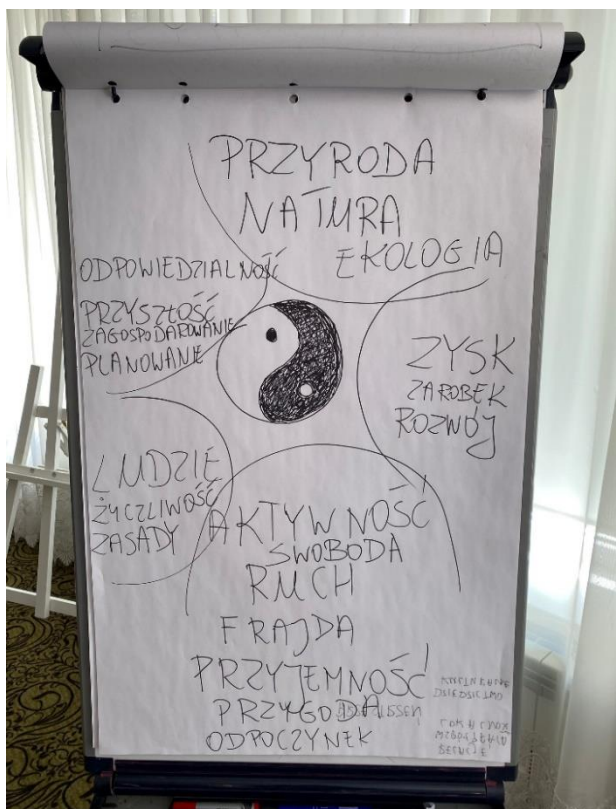 PRZYRODA
NATURA
EKOLOGIA
ODPOWIEDZIALNOŚĆ
PRZYSZŁOŚĆ
ZAGOSPODAROWANIE
PLANOWANIE
ZYSK
ZAROBEK
ROZWÓJ
LUDZIE
ŻYCZLIWOŚĆ
ZASADY
AKTYWNOŚĆ
SWOBODA
RUCH
FRAJDA
PRZYJEMNOŚĆ
PRZYGODA
ODPOCZYNEK